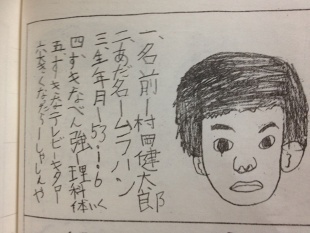 一、名前ー村岡健太郎
二、あだ名ームラハン
三、生年月ー53・1・6
四、すきなべん強ー理科体
五、すきなテレビー
六、大きくなったらーしゃしんや